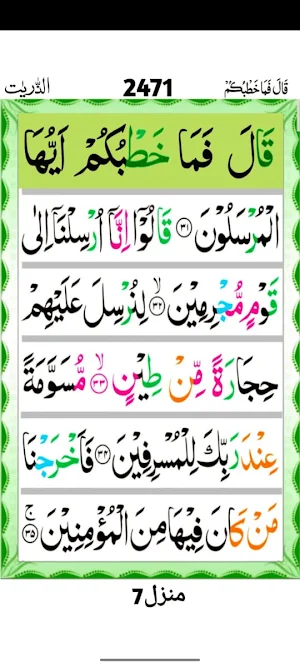 قَالَ فَمَا خَطْبُكُمْ 2471 الذّٰریٰت
قَالَ فَمَا خَطْبُكُمْ اَيُّهَا
الْمُرْسَلُوْنَ ﴿۳۱﴾ قَالُوْۤا اِنَّاۤ اُرْسِلْنَاۤ اِلٰى
قَوْمٍ مُّجْرِمِيْنَ ۙ﴿۳۲﴾ لِنُرْسِلَ عَلَيْهِمْ
حِجَارَةً مِّنْ طِيْنٍ ۙ﴿۳۳﴾ مُّسَوَّمَةً
عِنْدَ رَبِّكَ لِلْمُسْرِفِيْنَ ﴿۳۴﴾ فَاَخْرَجْنَا
مَنْ كَانَ فِيْهَا مِنَ الْمُؤْمِنِيْنَ ۚ﴿۳۵﴾
منزل 7